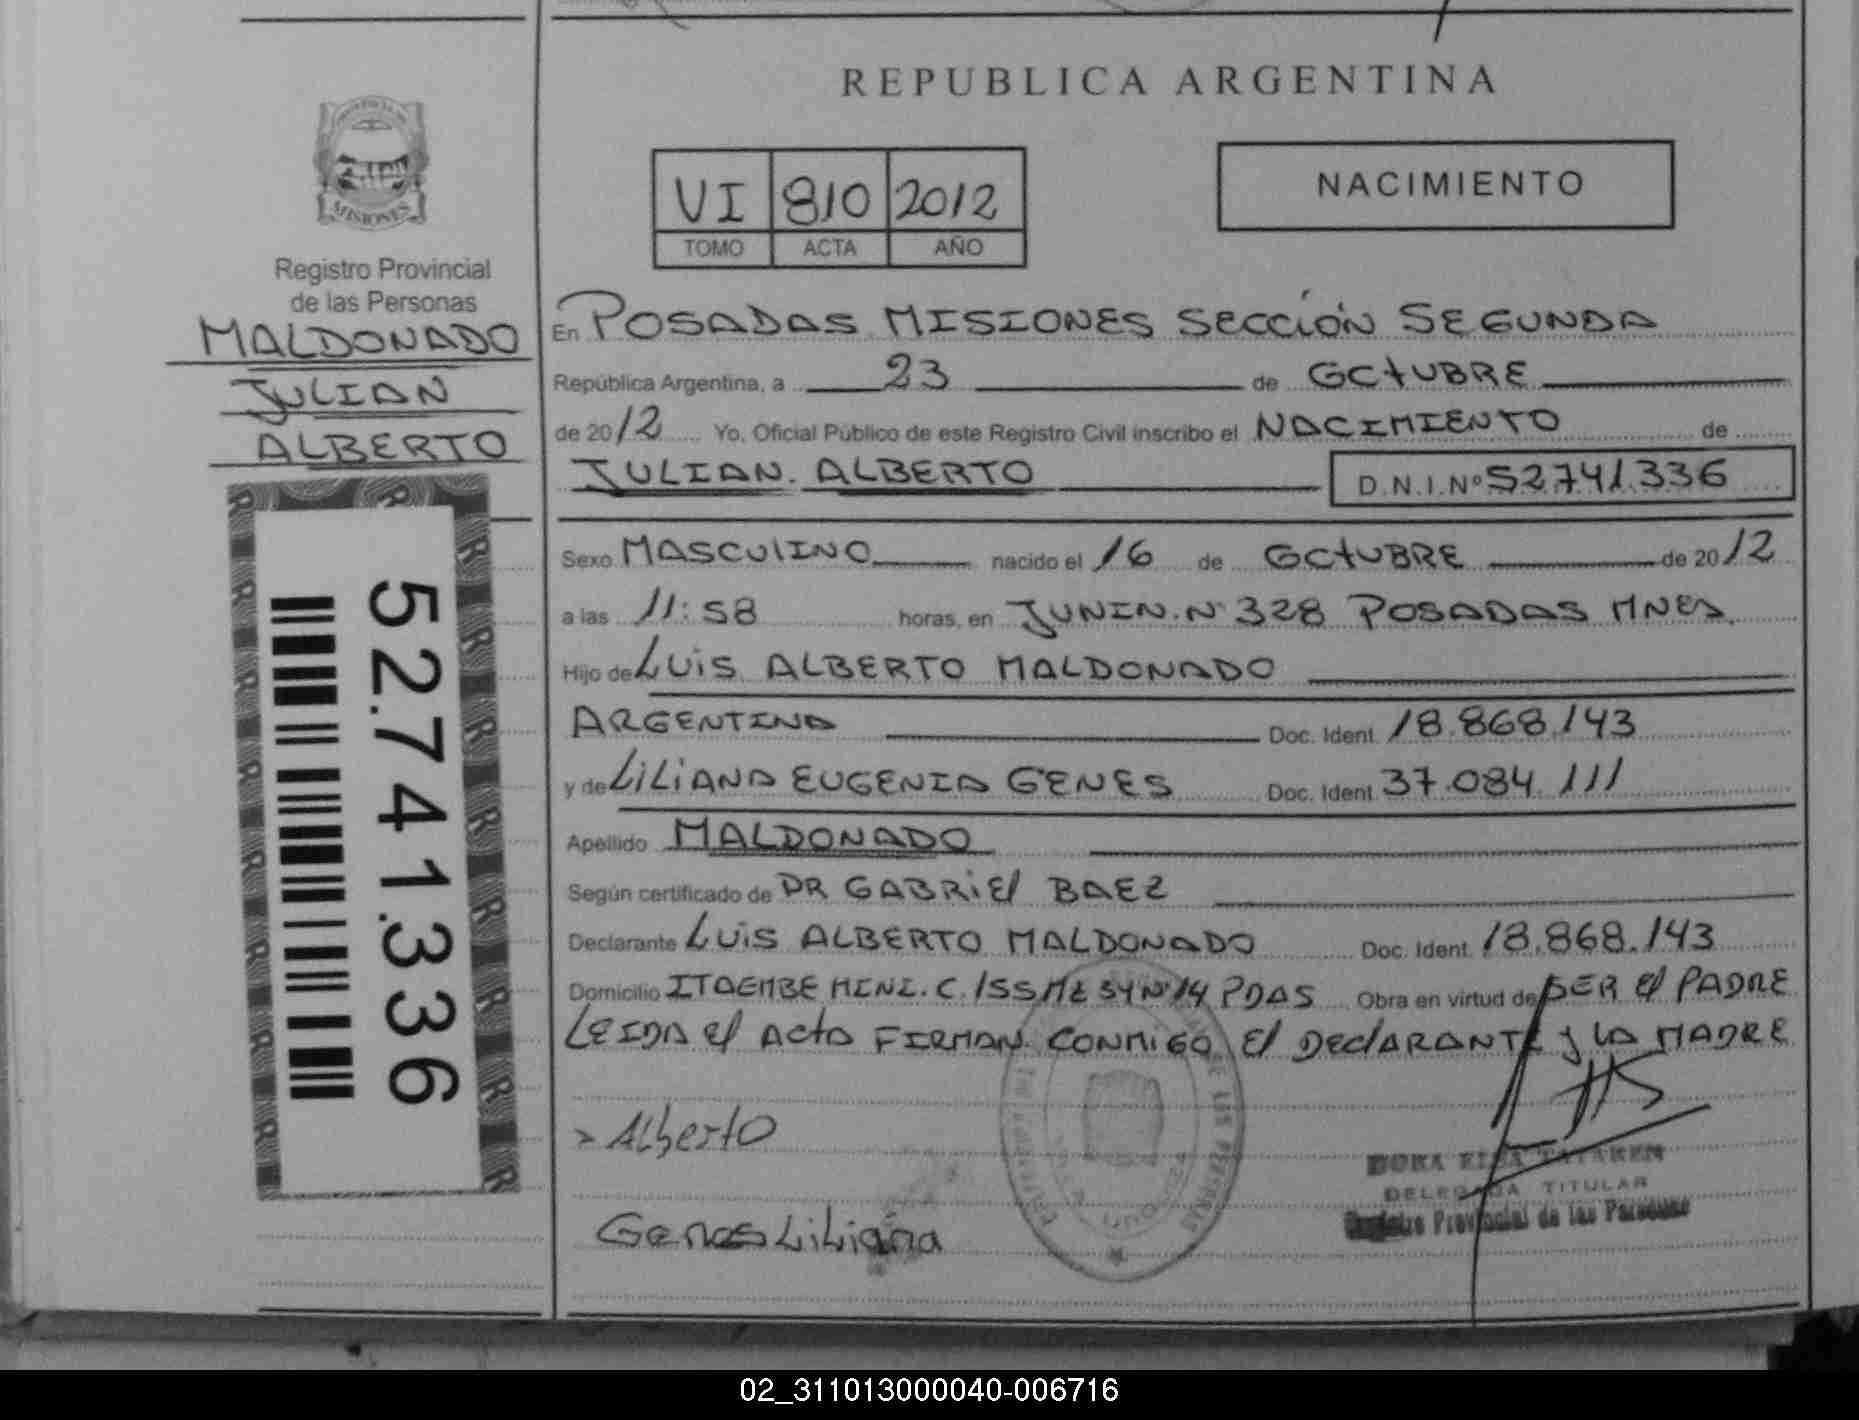 REPUBLICA ARGENTINA
VI 810 2012
TOMO ACTA AÑO
NACIMIENTO
PROVINCIA DE
MISIONES
Registro Provincial
de las Personas
MALDONADO
JULIAN
ALBERTO
52.741.336
En POSADAS MISIONES SECCIÓN SEGUNDA
República Argentina, a 23 de OCTUBRE
de 2012 Yo, Oficial Público de este Registro Civil inscribo el NACIMIENTO de
JULIAN ALBERTO D.N.I.Nº 52741.336
Sexo MASCULINO nacido el 16 de OCTUBRE de 2012
a las 11:58 horas, en JUNIN N 328 POSADAS MNES
Hijo de LUIS ALBERTO MALDONADO
ARGENTINA Doc. Ident. 18.868.143
y de LILIANA EUGENIA GENES Doc. Ident. 37.084.111
Apellido MALDONADO
Según certificado de DR GABRIEL BAEZ
Declarante LUIS ALBERTO MALDONADO Doc. Ident. 18.868.143
Domicilio ITAEMBE MINI. C. 155 MZ 34 Nº 14 PDAS Obra en virtud de SER El PADRE
LEIDA el ACTA FIRMAN CONMIGO El DEClARANTE y LA MADRE
Alberto
Genes Liliana
DELEGADA TITULAR
Registro Provincial de las Personas
02_311013000040-006716